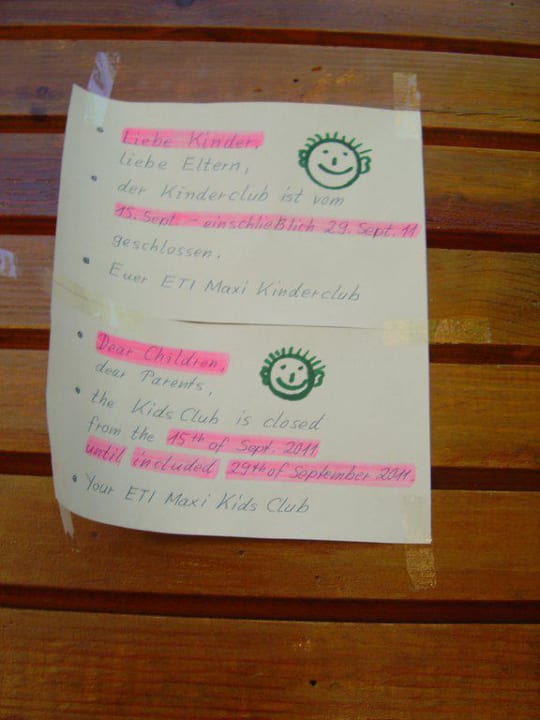 Liebe Kinder,
liebe Eltern,
der Kinderclub ist vom
15. Sept. - einschließlich 29. Sept. 11
geschlossen.
Euer ETI Maxi Kinderclub
Dear Children,
dear Parents,
the Kids Club is closed
from the 15th of Sept. 2011
until included 29th of September 2011.
Your ETI Maxi Kids Club